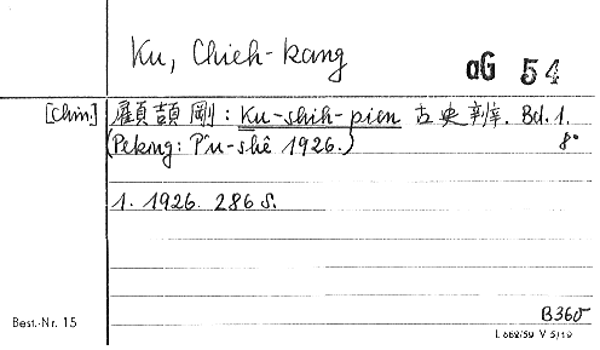 Ku, Chieh-kang
aG 54
[Chin.] 顧頡剛: Ku-shih-pien 古史辨. Bd. 1.
(Peking: P'u-shê 1926.) 8°
1. 1926. 286 S.
B360
Best.-Nr. 15
L 668/59 V 5/19